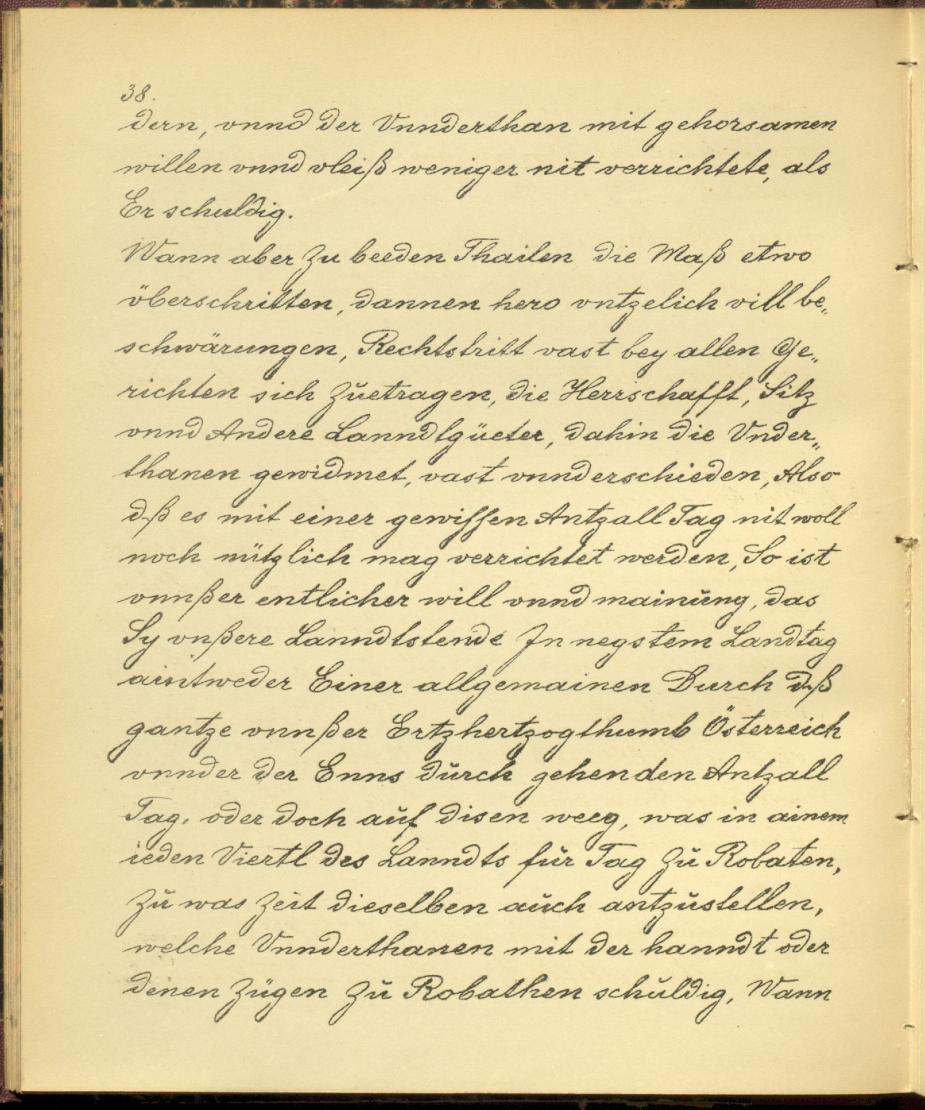 38.
dern, vnnd der Vnnderthan mit gehorsamen
willen vnnd vleiß weniger nit verrichtete, als
Er schuldig.
Wann aber zu beeden Thailen die Maß etwo
überschritten, dannen hero vntzelich vill be„
schwärungen, Rechtstritt vast bey allen Ge„
richten sich zuetragen, die Herrschafft, Sitz
vnnd Andere Lanndtgüeter, dahin die Vnder„
thanen gewidmet, vast vnnderschieden, Also
dß es mit einer gewissen Antzall Tag nit woll
noch nützlich mag verrichtet werden, So ist
vnnßer entlicher will vnnd mainung, das
Sy vnßere Lanndtstende In negstem Landtag
aintweder Einer allgemainen Durch dß
gantze vnnßer Ertzhertzogthumb Österreich
vnnder der Enns durch gehenden Antzall
Tag, oder doch auf disen weeg, was in ainem
ieden Viertl des Lanndts für Tag zu Robaten,
zu was zeit dieselben auch antzustellen,
welche Vnnderthanen mit der hanndt oder
denen zügen zu Robathen schuldig, Wann